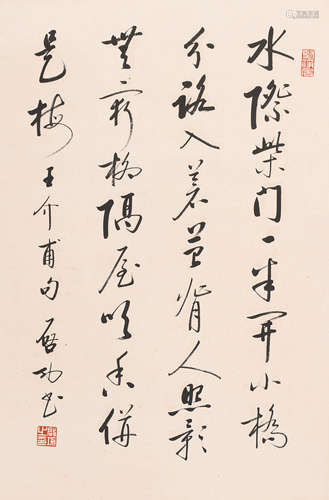 水際柴門一半開小橋
分路入蒼苔背人照影
無窮柳隔屋吹香併
是梅 王介甫句 啓功書